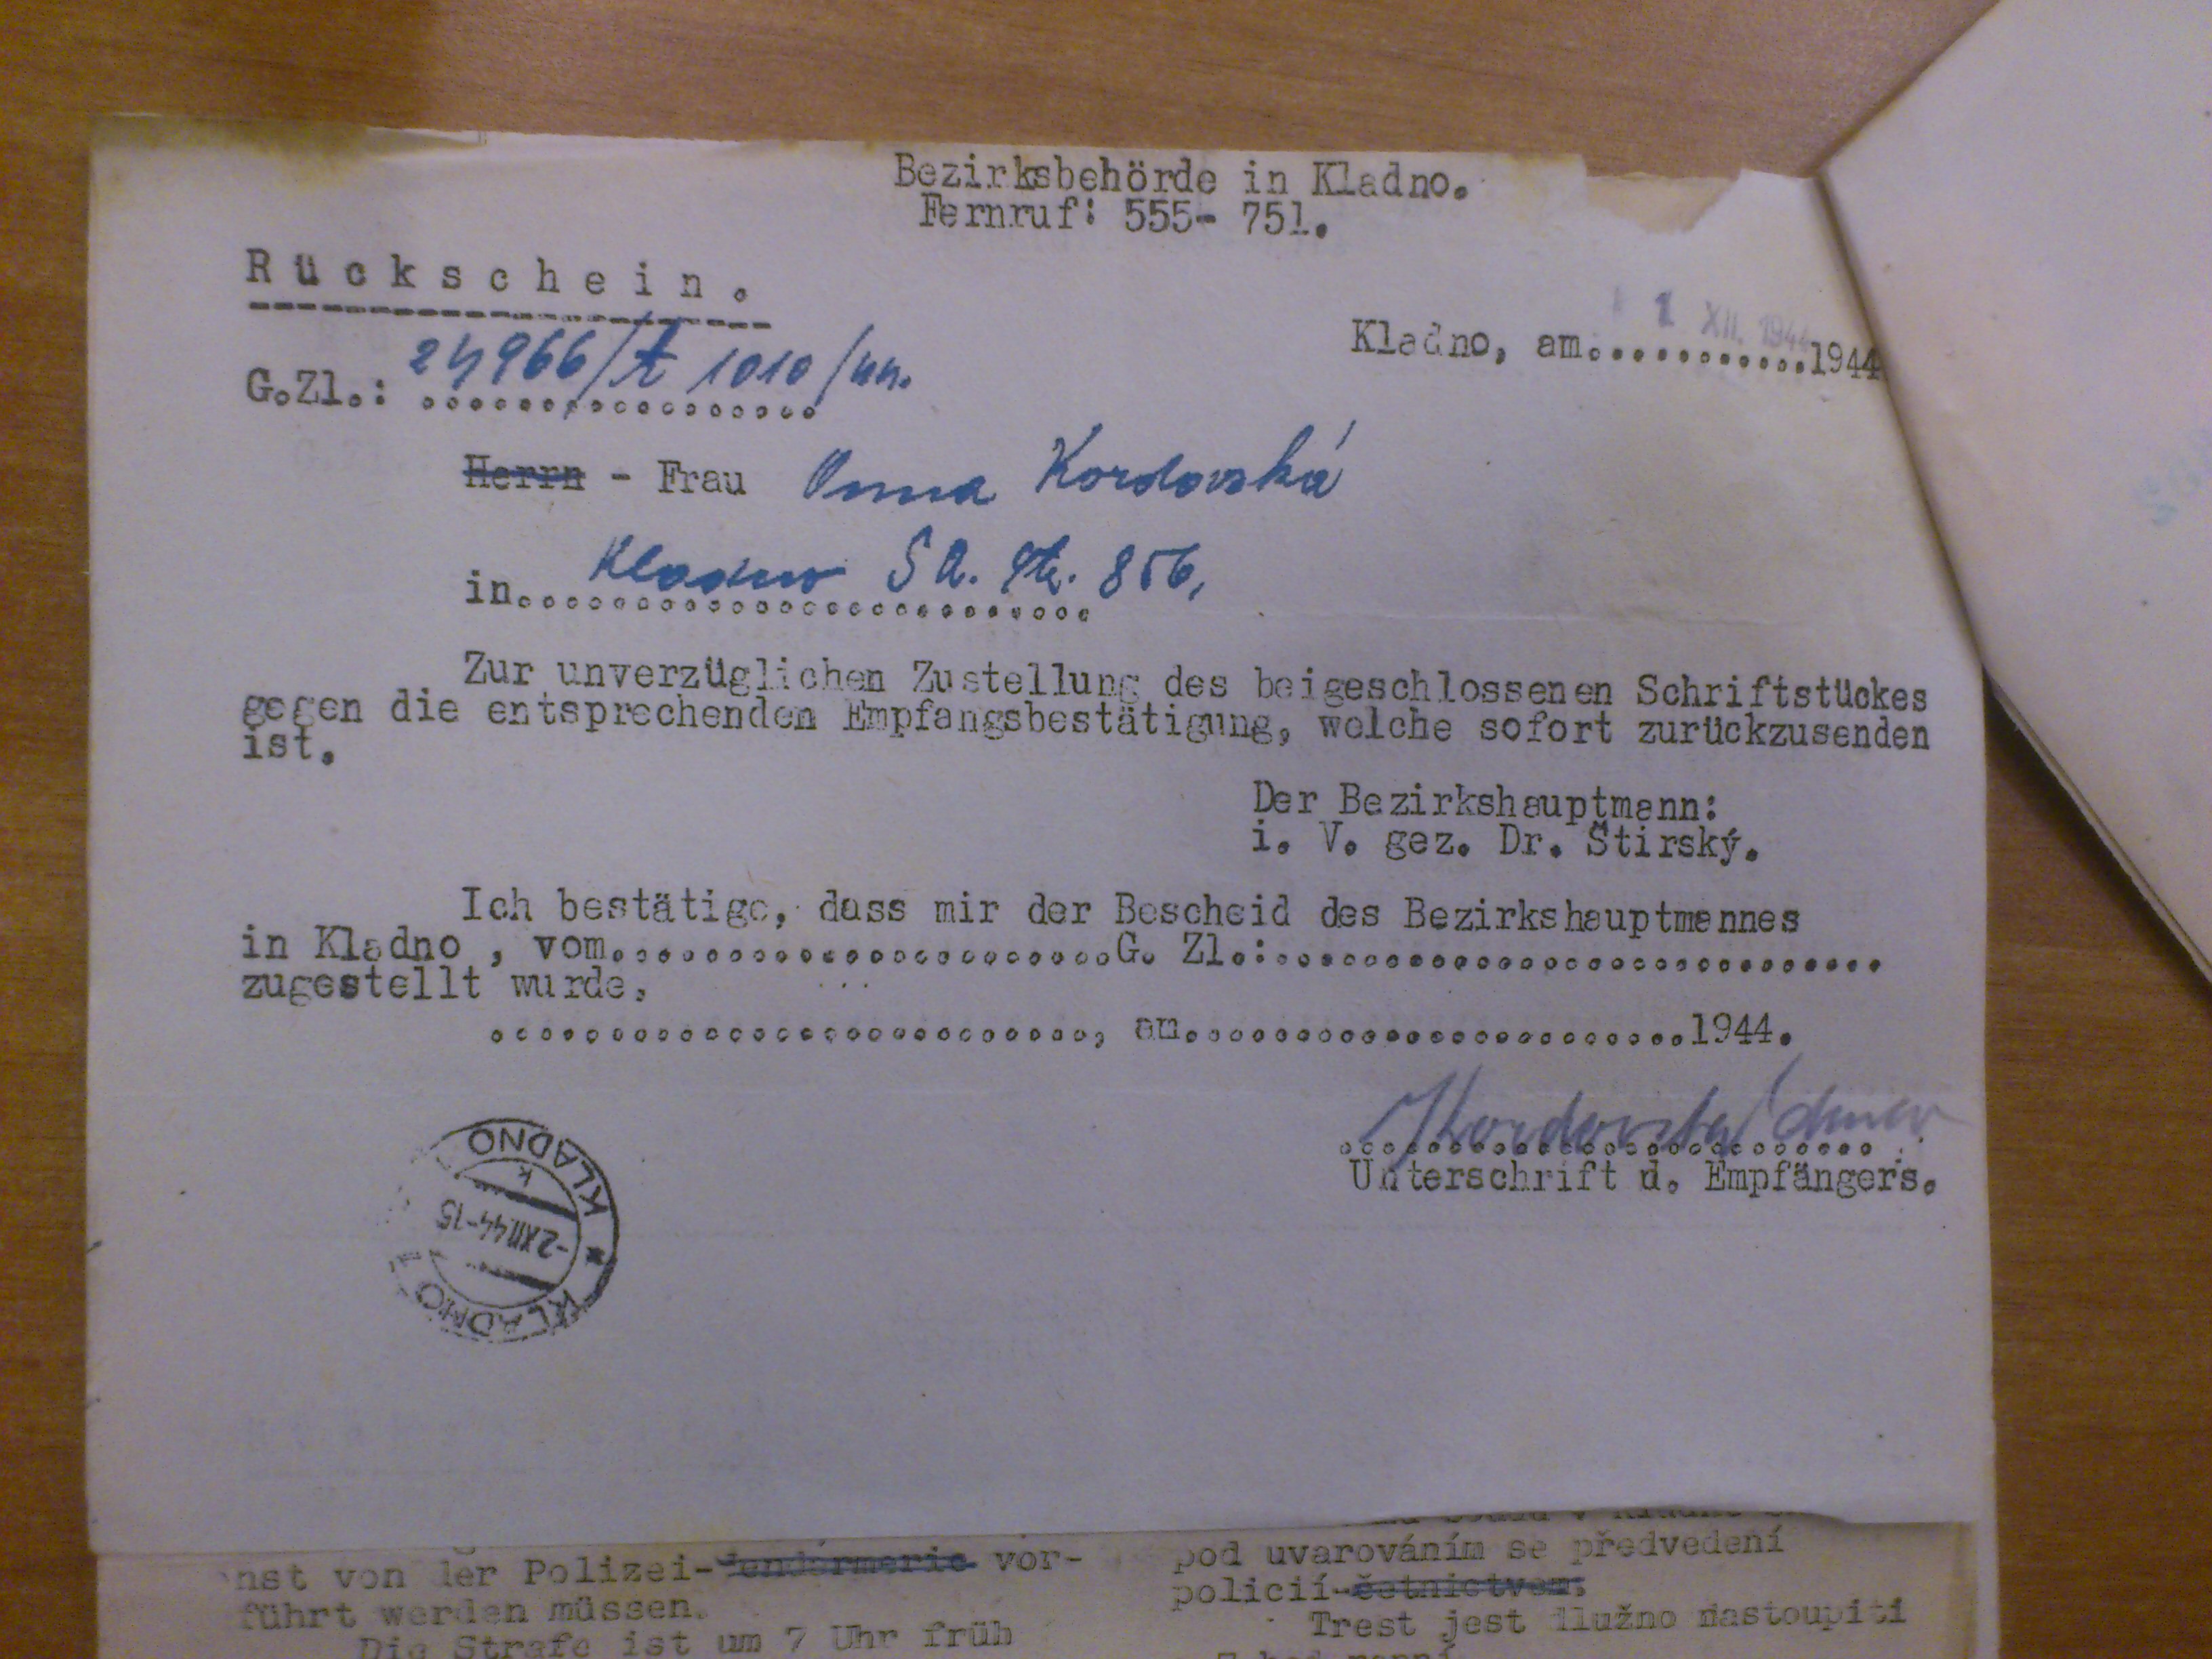 Bezirksbehörde in Kladno.
Fernruf: 555- 751.
Rückschein.
1 XII. 1944
Kladno, am............1944
G.Zl.: 24966/t 1010/
Herrn - Frau Anna Kordovská
in Kladno 856,
Zur unverzüglichen Zustellung des beigeschlossenen Schriftstückes
gegen die entsprechenden Empfangsbestätigung, welche sofort zurückzusenden
ist.
Der Bezirkshauptmann:
i. V. gez. Dr. Štirský.
Ich bestätige, dass mir der Bescheid des Bezirkshauptmannes
in Kladno , vom......................G. Zl.:..........................
zugestellt wurde.
.........................., am.....................1944.
Kordovská Anna
Unterschrift d. Empfängers.
KLADNO * KLADNO
k
-2XII44-15
von der Polizei-Gendarmerie vor-
führt werden müssen.
Die Strafe ist um 7 Uhr früh
pod uvarováním se předvedení
policií-četnictvem.
Trest jest nastoupiti